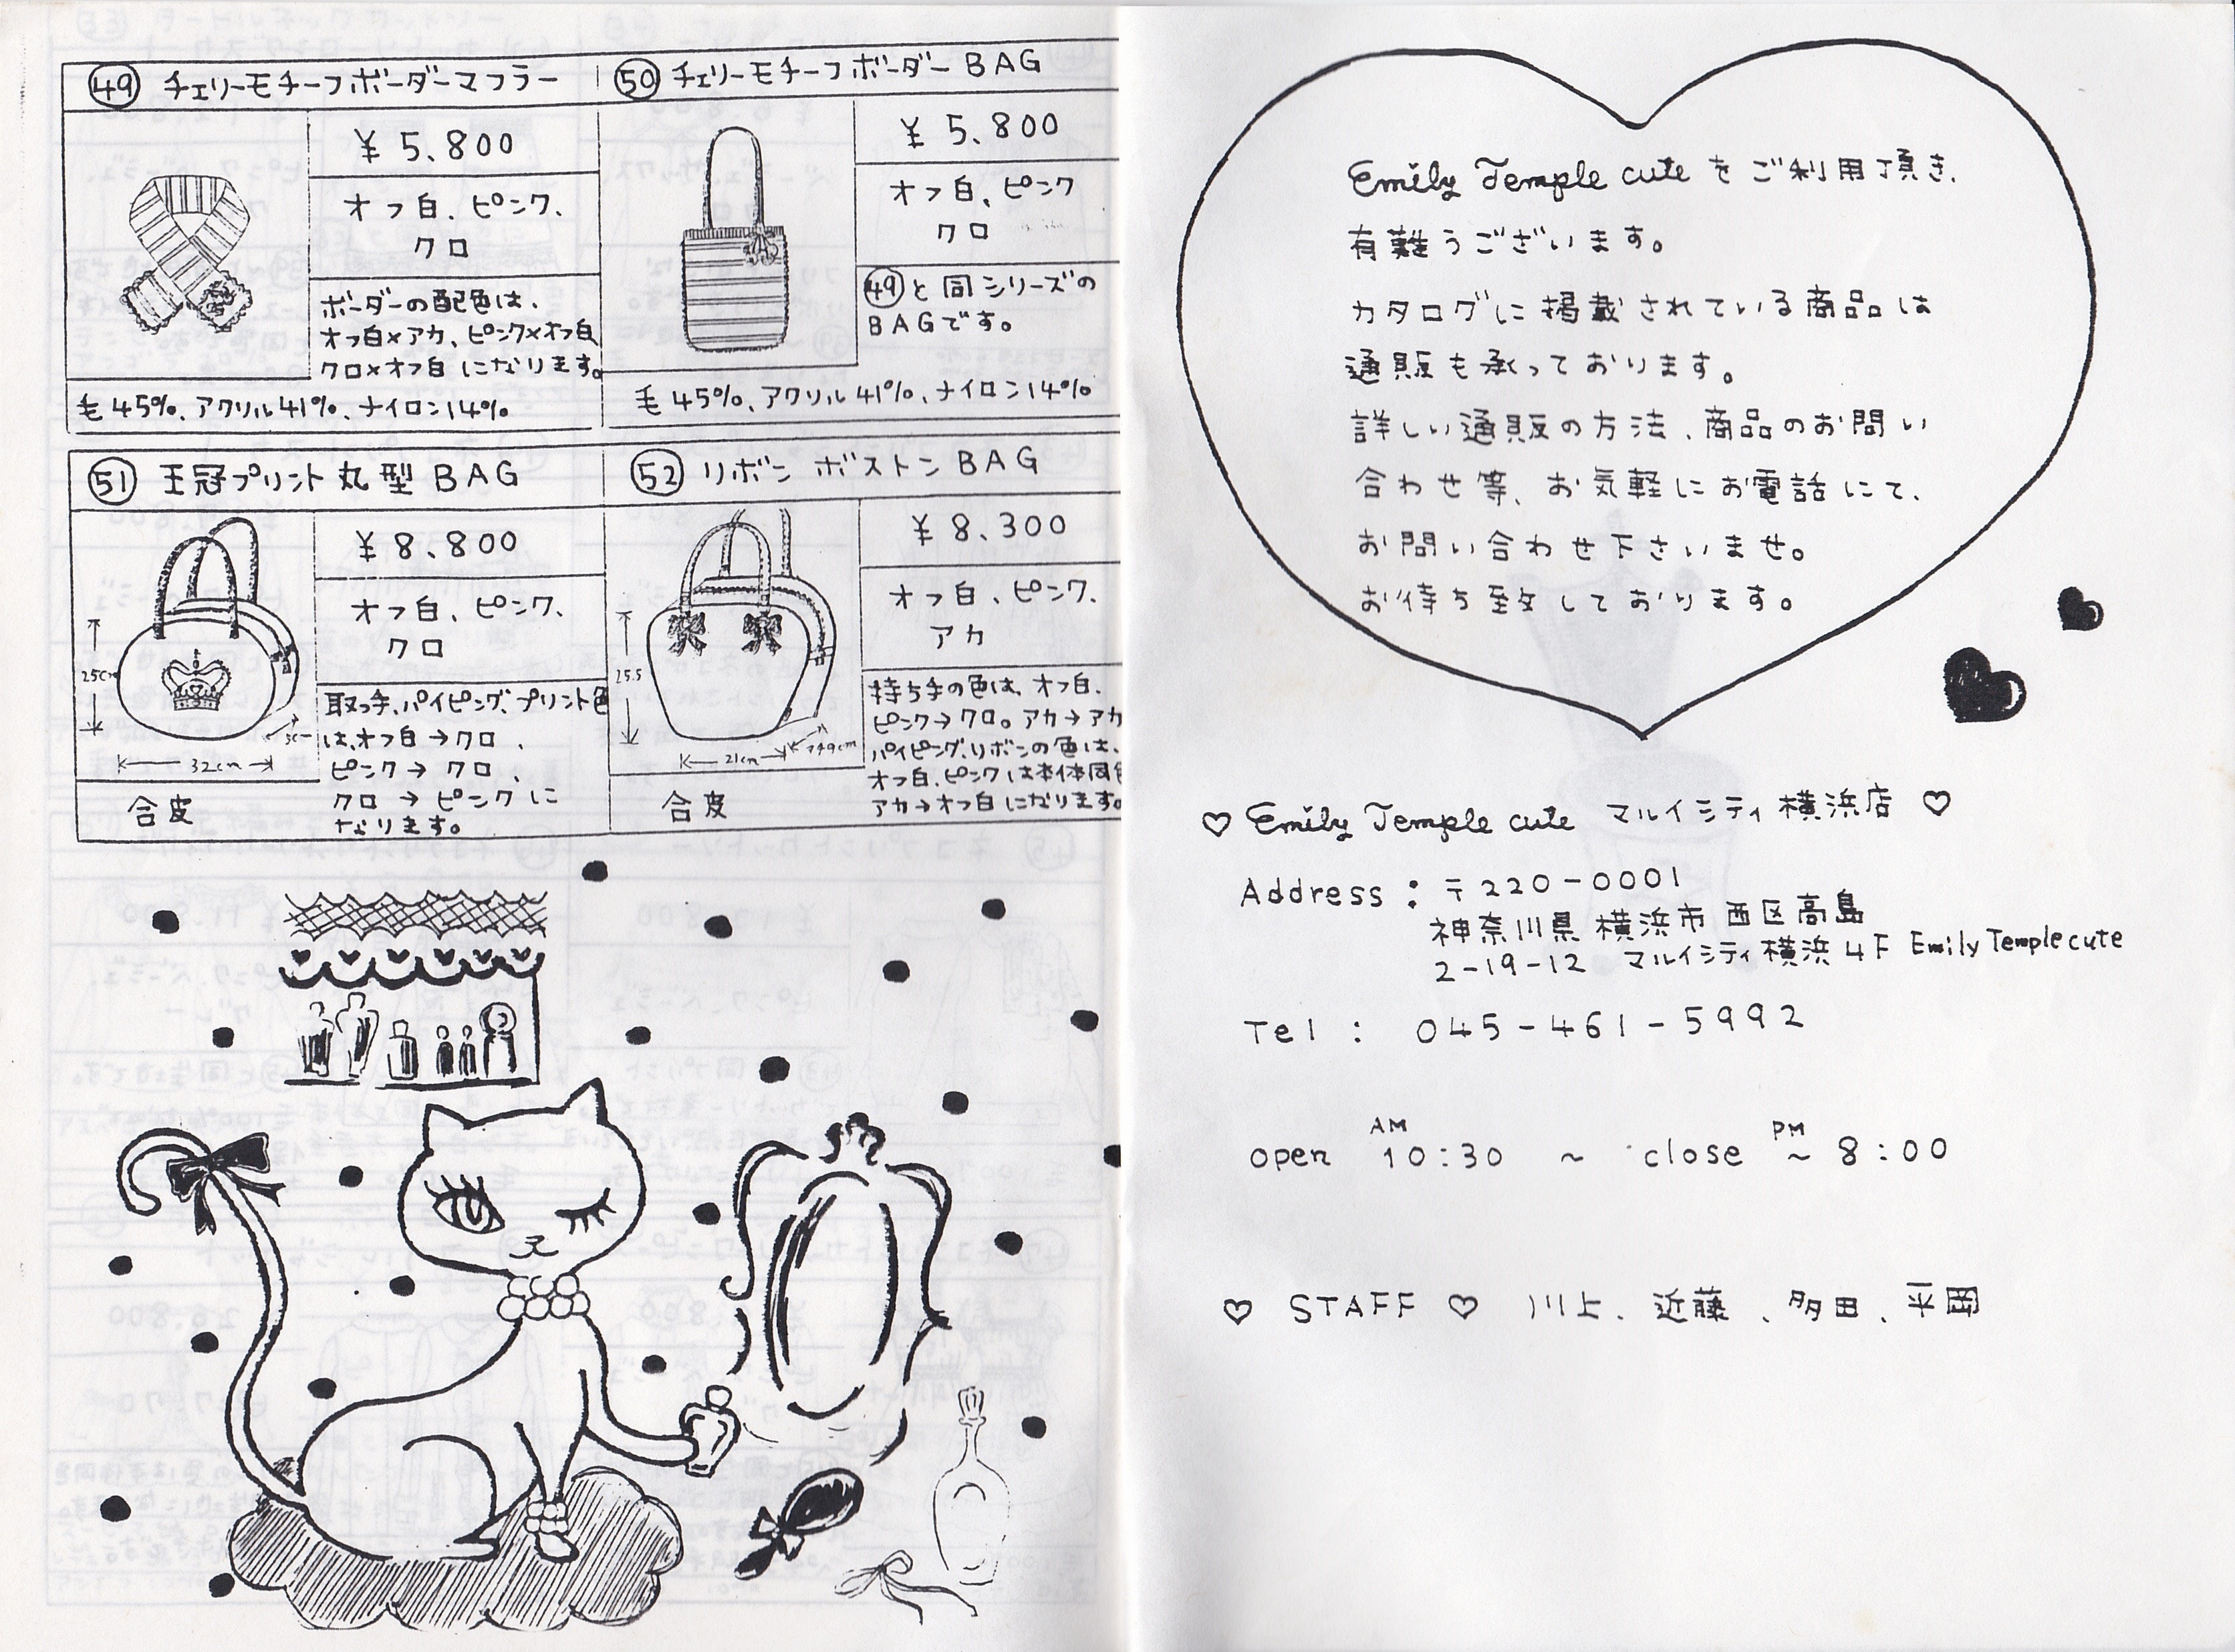 ㊾ チェリーモチーフボーダーマフラー
¥5,800
オフ白、ピンク、
クロ
ボーダーの配色は、
オフ白×アカ、ピンク×オフ白
クロ×オフ白になります。
毛45%、アクリル41%、ナイロン14%
㊿ チェリーモチーフボーダーBAG
¥5,800
オフ白、ピンク
クロ
㊾と同シリーズの
BAGです。
毛45%、アクリル41%、ナイロン14%
51 王冠プリント丸型BAG
25cm
32cm
¥8,800
オフ白、ピンク、
クロ
取っ手、パイピング、プリント色
は、オフ白→クロ、
ピンク→クロ、
クロ→ピンクに
なります。
合皮
52 リボン ボストンBAG
25.5
21cm
¥8,300
オフ白、ピンク、
アカ
持ち手の色は、オフ白、
ピンク→クロ。アカ→アカ
パイピング、リボンの色は、
オフ白、ピンクは本体同色
アカ→オフ白になります。
合皮
Emily Temple cuteをご利用頂き、
有難うございます。
カタログに掲載されている商品は
通販も承っております。
詳しい通販の方法、商品のお問い
合わせ等、お気軽にお電話にて、
お問い合わせ下さいませ。
お待ち致しております。
♡ Emily Temple cute マルイシティ横浜店 ♡
Address : 〒220-0001
神奈川県横浜市西区高島
2-19-12 マルイシティ横浜4F Emily Temple cute
Tel : 045-461-5992
open AM 10:30 ~ close PM ~ 8:00
♡ STAFF ♡ 川上、近藤、多田、平岡